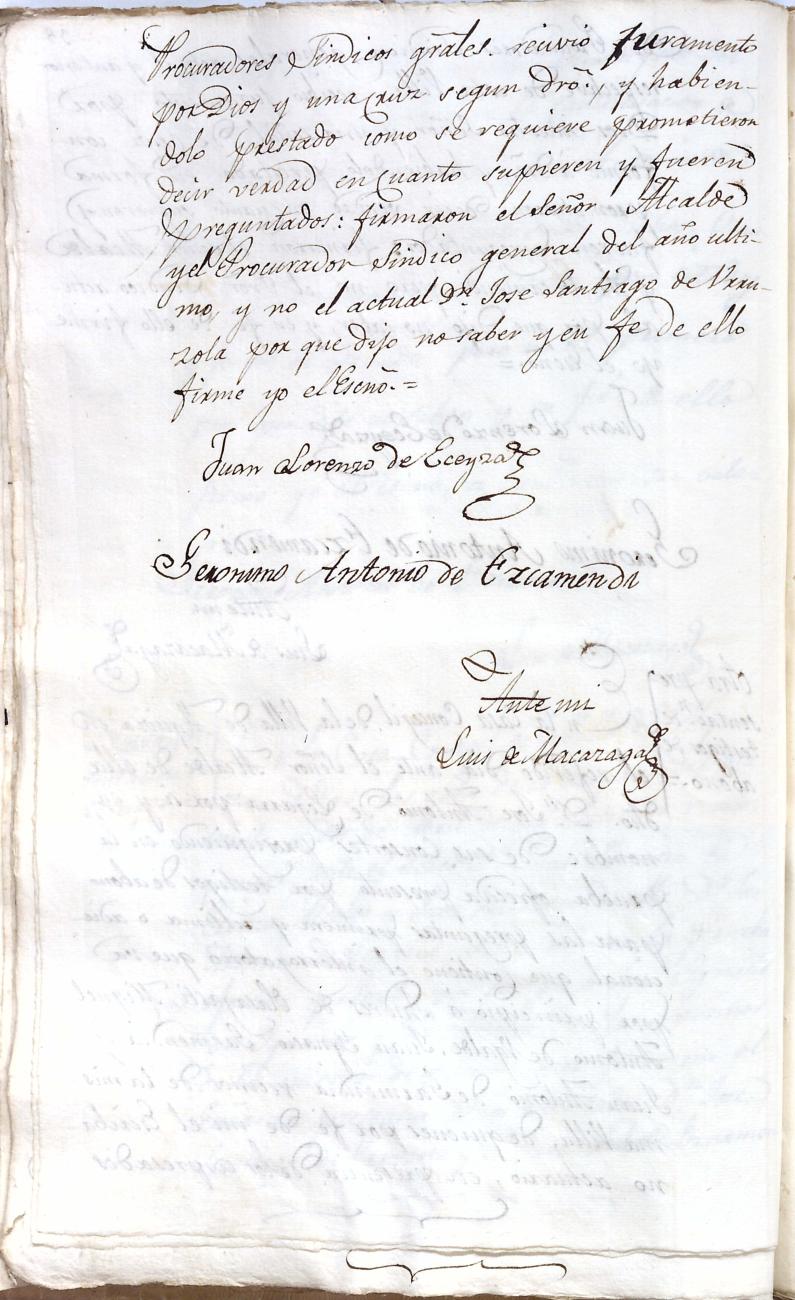 Procuradores Sindicos grãles. recivio Juramento
por Dios y una Cruz segun drõ: y habien-
dolo prestado como se requiere prometieron
decir verdad en Cuanto supieren y fueren
preguntados: firmaron el Señor Alcalde
y el Procurador Sindico general del año ulti-
mo, y no el actual Dn. Jose Santiago de Urru-
zola por que dijo no saber y en fe de ello
firme yo el Escnõ.=
Juan Lorenzo de Eceyza
Geronimo Antonio de Ezcamendi
Ante mi
Luis de Macazaga